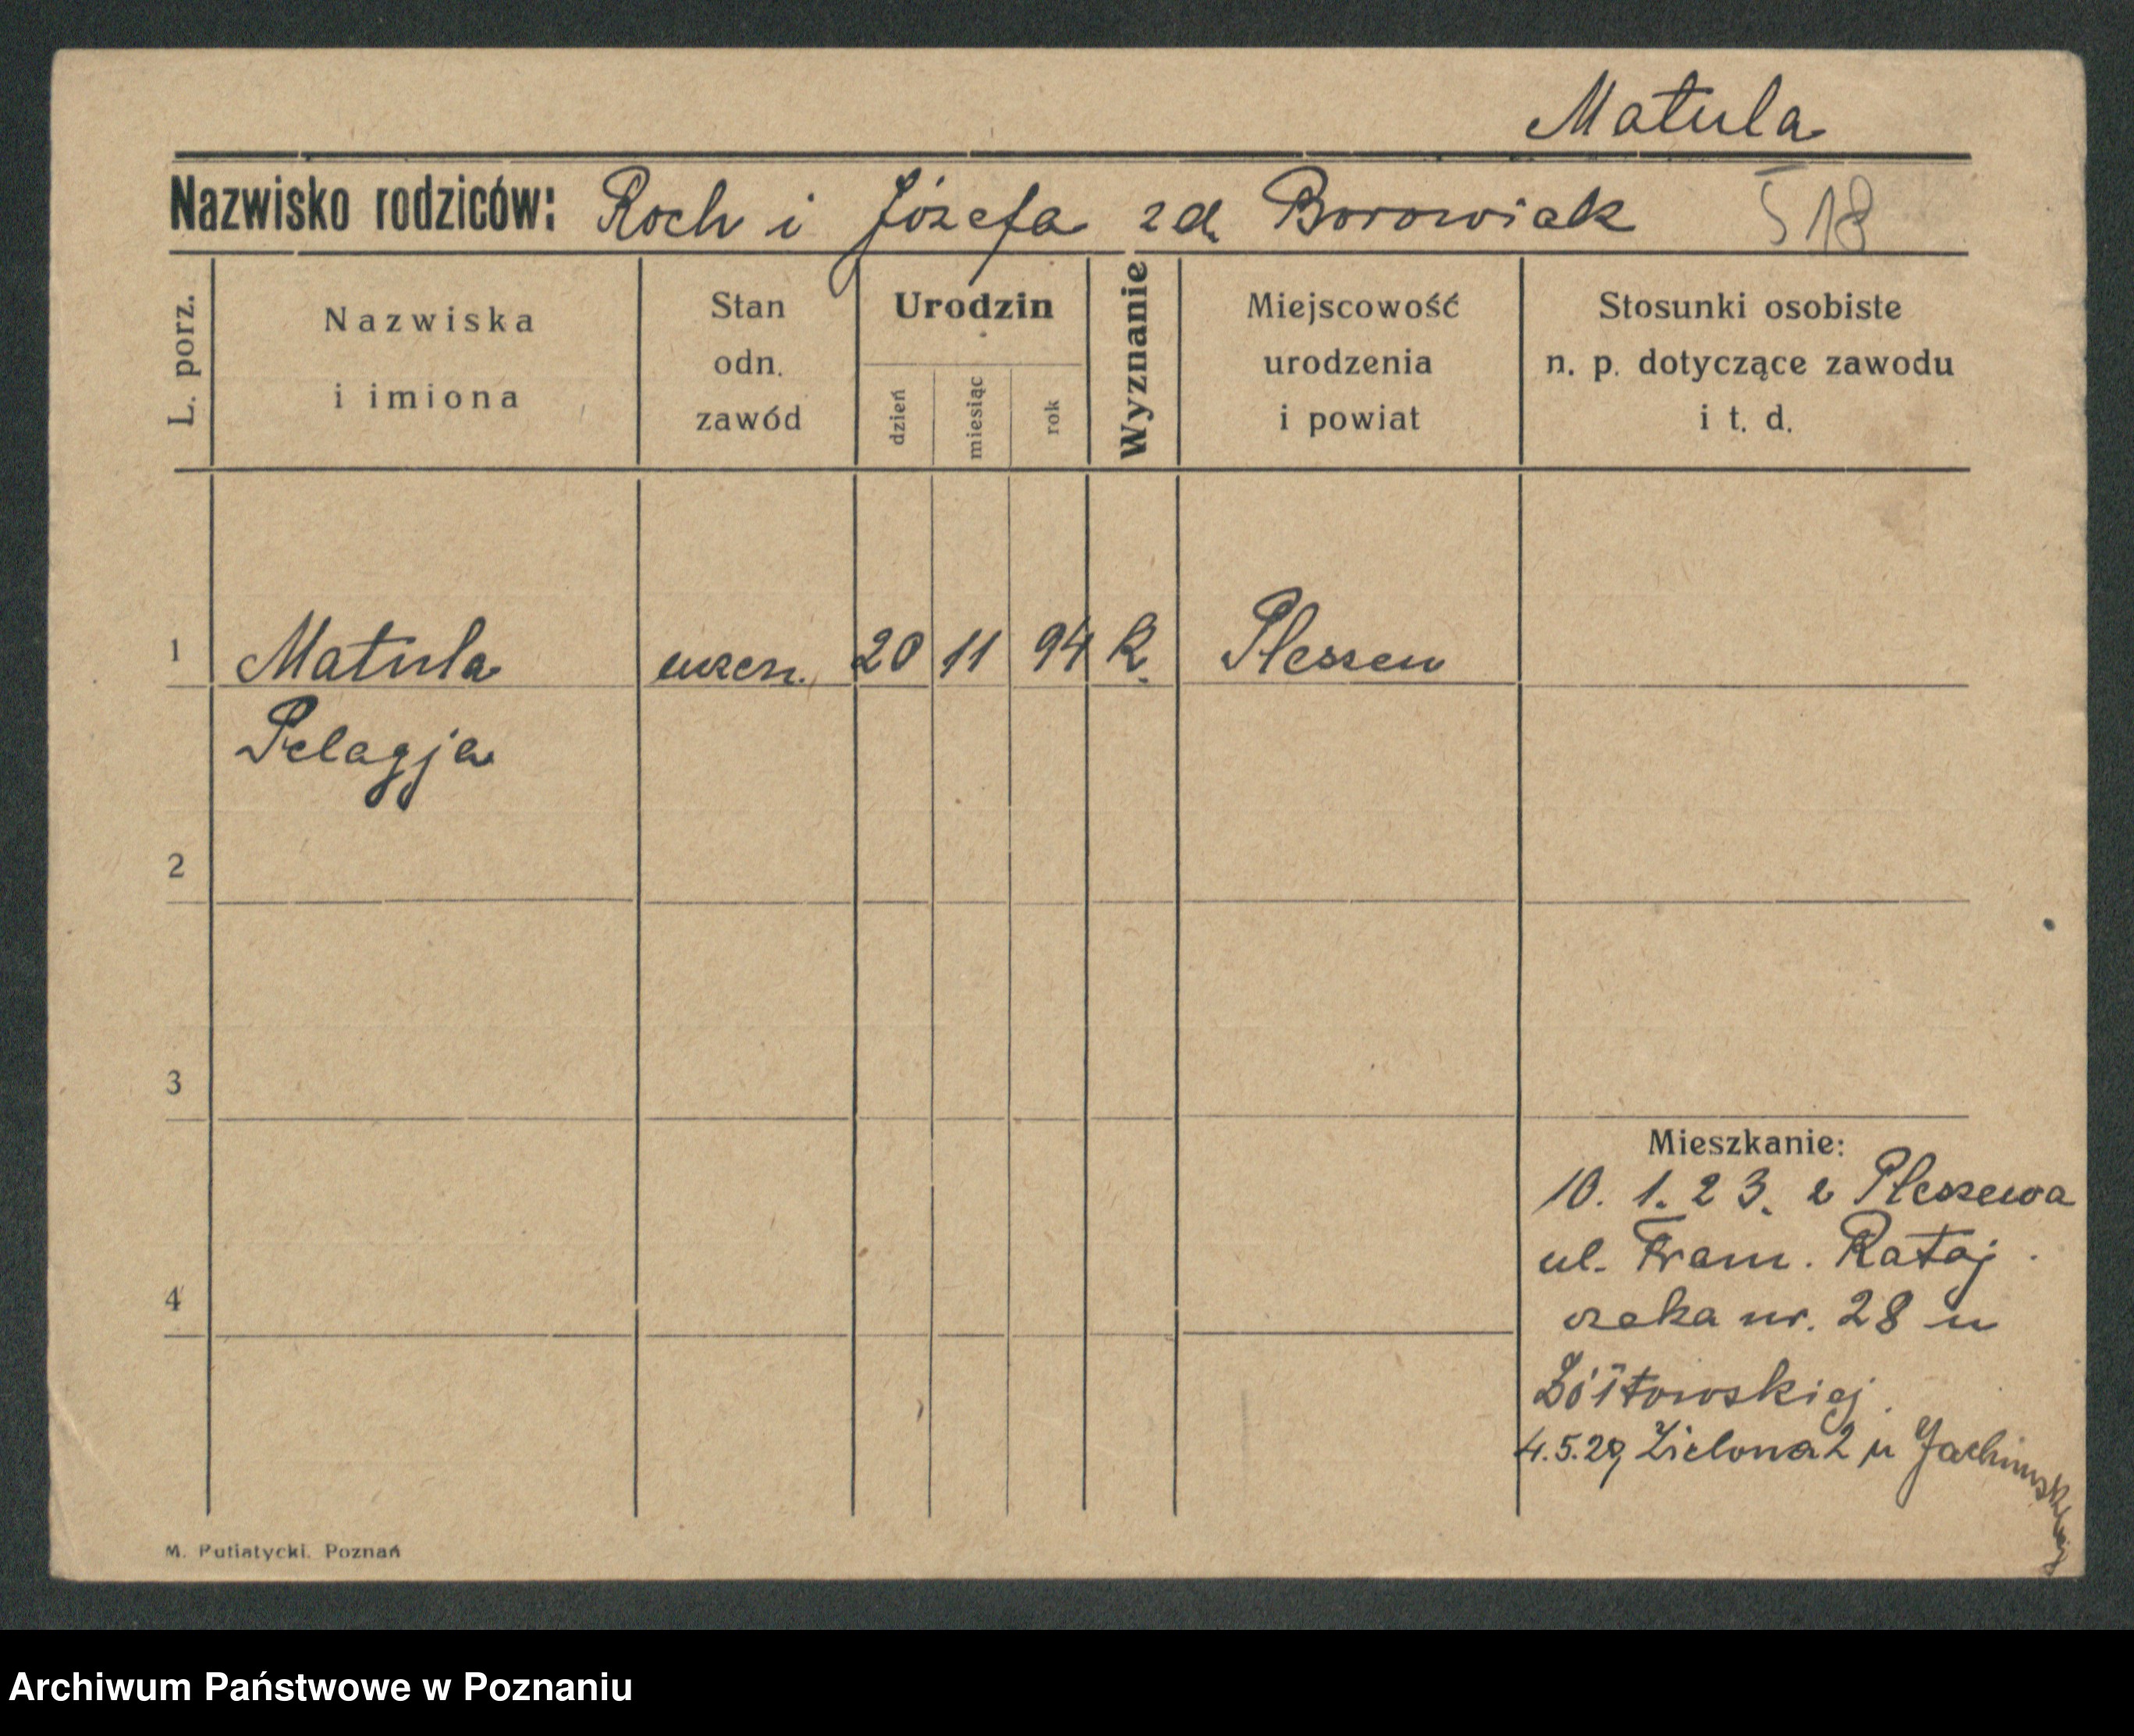 Matula
Nazwisko rodziców: Roch i Józefa zd. Borowiak 518
L. porz.
Nazwiska
i imiona
Stan
odn.
zawód
Urodzin
dzień
miesiąc
rok
Wyznanie
Miejscowość
urodzenia
i powiat
Stosunki osobiste
n. p. dotyczące zawodu
i t. d.
1 Matula uczen. 20 11 94 K. Plessen
Pelagja
2
3
4
Mieszkanie:
10. 1. 23. z Pleszewa
ul. Fram. Rataj
czaka nr. 28 u
Żółtowskiej.
4.5.29, Zielona 2 u Jachimskiej
M. Putiatycki. Poznań
Archiwum Państwowe w Poznaniu